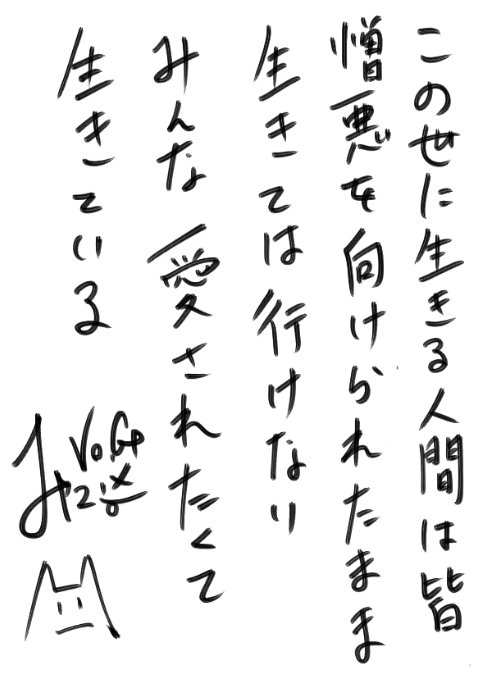 この世に生きる人間は皆
憎悪を向けられたまま
生きては行けない
みんな 愛されたくて
生きている